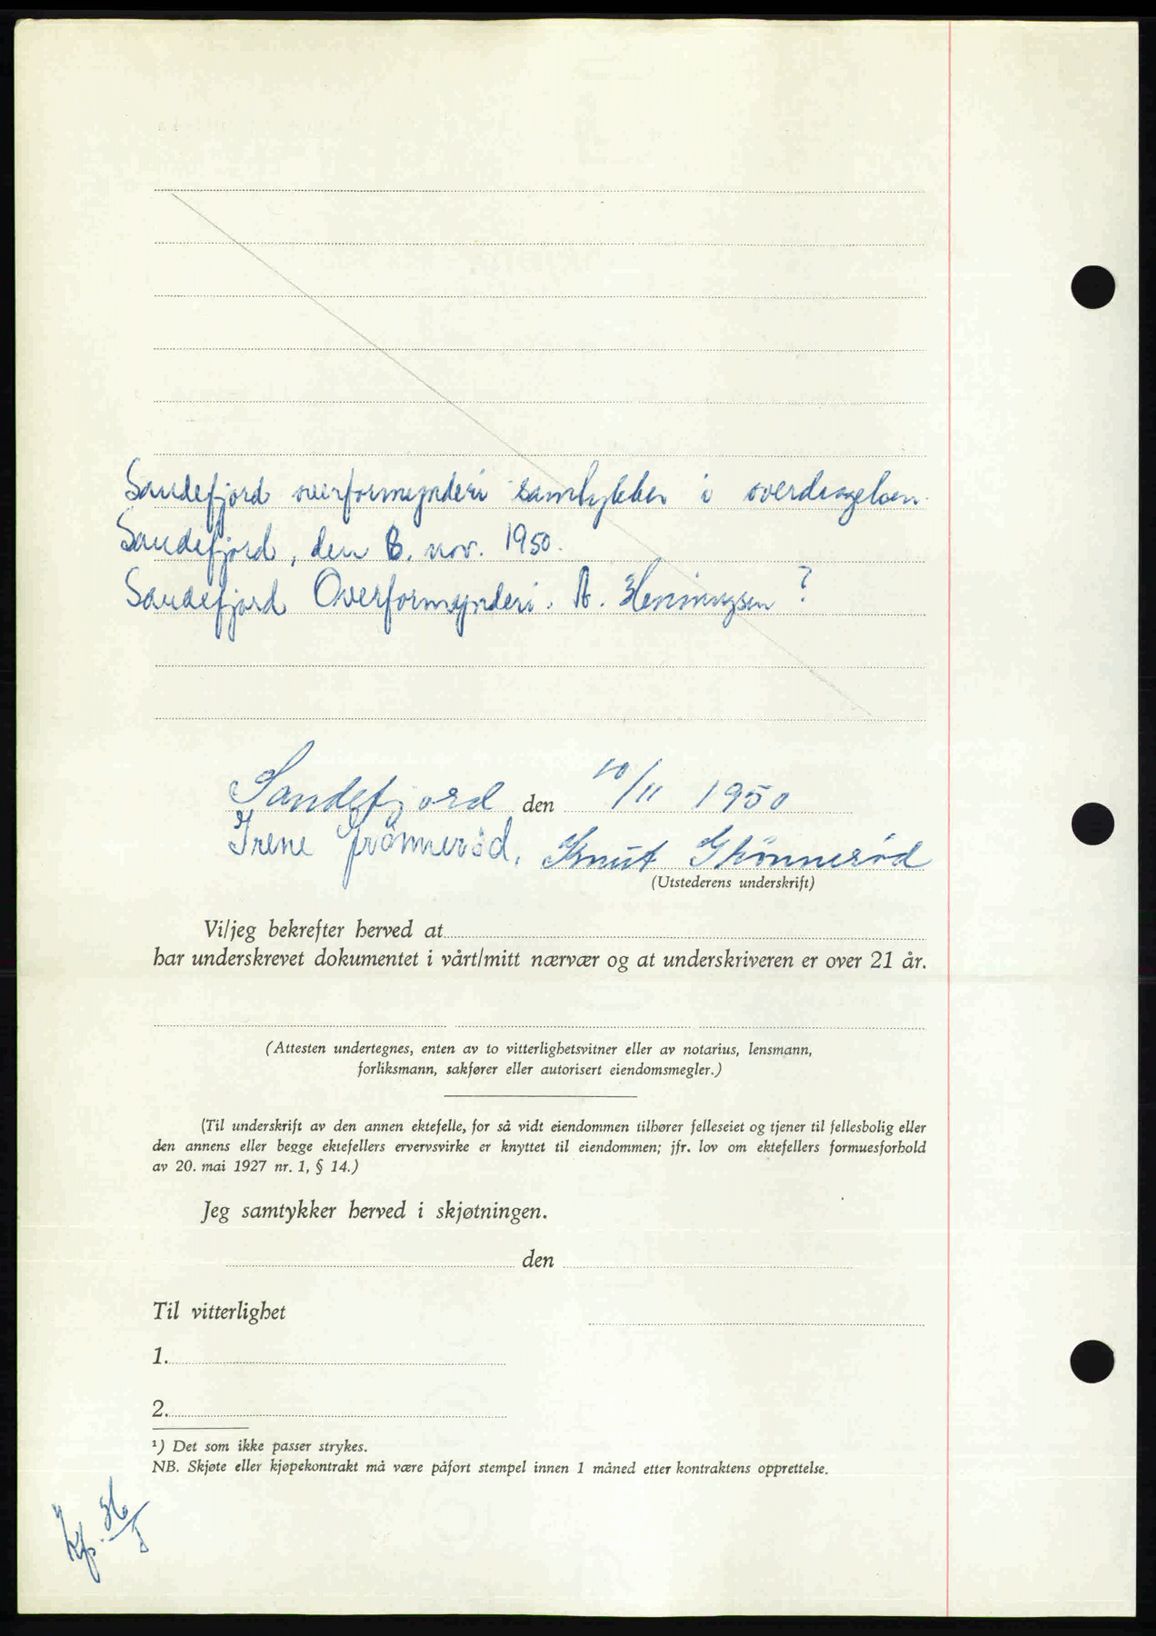 Sandefjord overformynderi samtykker i overdragelsen.
Sandefjord, den 8. nov. 1950.
Sandefjord Overformynderi. A. Henningsen ?
Sandefjord den 10/11 1950
Irene Grönnerød, Knut Grönnerød
(Utstederens underskrift)
Vi/jeg bekrefter herved at
har underskrevet dokumentet i vårt/mitt nærvær og at underskriveren er over 21 år.
(Attesten undertegnes, enten av to vitterlighetsvitner eller av notarius, lensmann,
forliksmann, sakfører eller autorisert eiendomsmegler.)
(Til underskrift av den annen ektefelle, for så vidt eiendommen tilhører felleseiet og tjener til fellesbolig eller
den annens eller begge ektefellers ervervsvirke er knyttet til eiendommen; jfr. lov om ektefellers formuesforhold
av 20. mai 1927 nr. 1, § 14.)
Jeg samtykker herved i skjøtningen.
den
Til vitterlighet
1.
2.
¹) Det som ikke passer strykes.
NB. Skjøte eller kjøpekontrakt må være påført stempel innen 1 måned etter kontraktens opprettelse.